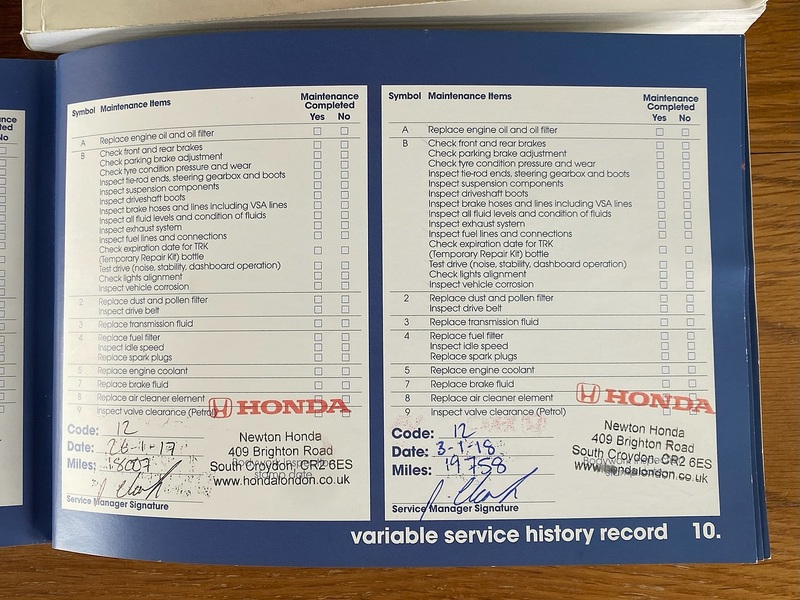 ted
No
Symbol Maintenance Items Maintenance Completed
Yes No
A Replace engine oil and oil filter
B Check front and rear brakes
Check parking brake adjustment
Check tyre condition pressure and wear
Inspect tie-rod ends, steering gearbox and boots
Inspect suspension components
Inspect driveshaft boots
Inspect brake hoses and lines including VSA lines
Inspect all fluid levels and condition of fluids
Inspect exhaust system
Inspect fuel lines and connections
Check expiration date for TRK
(Temporary Repair Kit) bottle
Test drive (noise, stability, dashboard operation)
Check lights alignment
Inspect vehicle corrosion
2 Replace dust and pollen filter
Inspect drive belt
3 Replace transmission fluid
4 Replace fuel filter
Inspect idle speed
Replace spark plugs
5 Replace engine coolant
7 Replace brake fluid
8 Replace air cleaner element
9 Inspect valve clearance (Petrol)
HONDA
Code: 12
Date: 26-1-17
Miles: 18007
Newton Honda
409 Brighton Road
South Croydon CR2 6ES
www.hondalondon.co.uk
stamp date
Service Manager Signature
Symbol Maintenance Items Maintenance Completed
Yes No
A Replace engine oil and oil filter
B Check front and rear brakes
Check parking brake adjustment
Check tyre condition pressure and wear
Inspect tie-rod ends, steering gearbox and boots
Inspect suspension components
Inspect driveshaft boots
Inspect brake hoses and lines including VSA lines
Inspect all fluid levels and condition of fluids
Inspect exhaust system
Inspect fuel lines and connections
Check expiration date for TRK
(Temporary Repair Kit) bottle
Test drive (noise, stability, dashboard operation)
Check lights alignment
Inspect vehicle corrosion
2 Replace dust and pollen filter
Inspect drive belt
3 Replace transmission fluid
4 Replace fuel filter
Inspect idle speed
Replace spark plugs
5 Replace engine coolant
7 Replace brake fluid
8 Replace air cleaner element
9 Inspect valve clearance (Petrol)
HONDA
Code: 12
Date: 3-1-18
Miles: 19758
Newton Honda
409 Brighton Road
South Croydon CR2 6ES
www.hondalondon.co.uk
stamp date
Service Manager Signature
variable service history record 10.